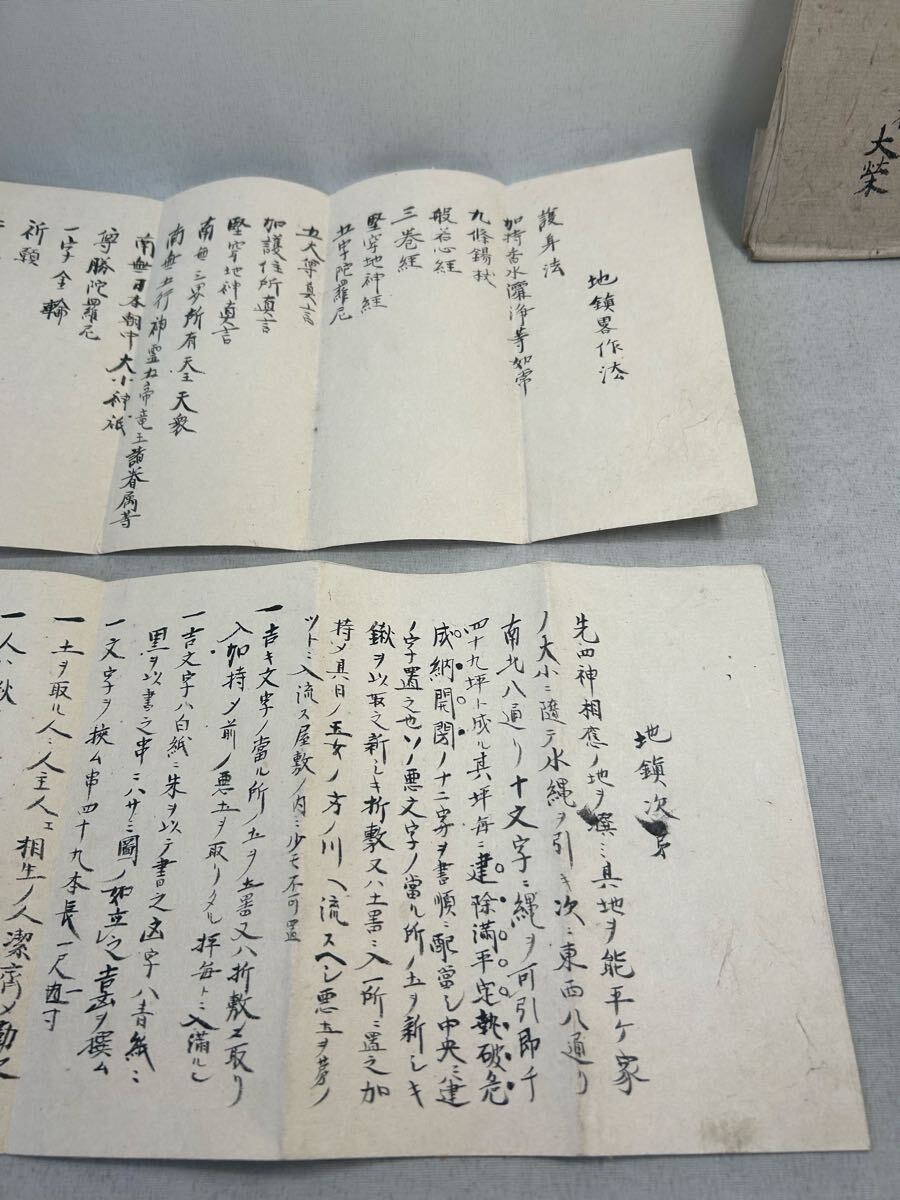 大榮
地鎮畧作法
護身法
加持香水灑浄等如常
九條錫杖
般若心經
三巻経
堅牢地神経
五字陀羅尼
五大尊真言
加護住所真言
堅牢地神真言
南無三界所有天王天衆
南無五行神霊五帝竜王諸眷属等
南無日本朝中大小神祇
尊勝陀羅尼
一字金輪
祈願
地鎮次第
先四神相應ノ地ヲ撰ミ其地ヲ能平ケ家
ノ大小ニ隨テ水縄ヲ引キ次ニ東西八通リ
南北八通リ十文字ニ縄ヲ可引即チ
四十九坪ト成ル其坪毎ニ建除満平定執破危
成納開閉ノ十二字ヲ書順ニ配當シ中央ニ建
ノ字置之也ソノ悪文字ノ當ル所ノ土ヲ新シキ
鍬ヲ以取之新シキ折敷又ハ土器ニ入一所ニ置之加
持〆其日ノ玉女ノ方ノ川ヘ流スヘシ悪土ヲ
ツトニ入流ス屋敷ノ内ニ少モ不可置
一吉キ文字ノ當ル所ノ土ヲ土器又ハ折敷エ取リ
入加持〆前ノ悪土ヲ取リタル坪毎ニ入満ルヘシ
一吉文字ハ白紙ニ朱ヲ以テ書之凶字ハ青紙ニ
黒ヲ以書之串ニハサミ圖ノ如立之吉凶ヲ撰ム
一文字ヲ挾ム串四十九本長一尺
一土ヲ取ル人ハ人主人エ相生ノ人潔齊〆勤之
一人ハ鍬